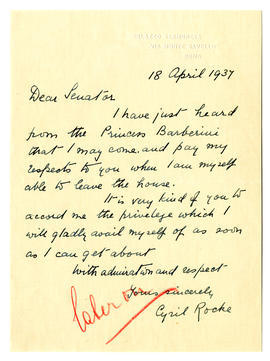 VIA MONTE SAVELLO
ROMA
18 April 1937
Dear Senator
I have just heard
from the Princess Barberini
that I may come and pay my
respects to you when I am myself
able to leave the house.
It is very kind of you to
accord me the privilege which I
will gladly avail myself of as soon
as I can get about
With admiration and respect
Yours sincerely
Cyril Rocke